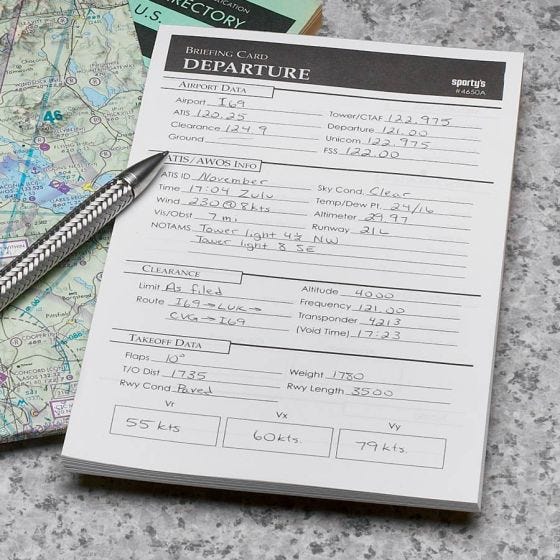 U.S.
DIRECTORY
46
BRIEFING CARD
DEPARTURE
sporty's
#4650A
AIRPORT DATA
Airport I69 Tower/CTAF 122.975
ATIS 120.25 Departure 121.00
Clearance 124.9 Unicom 122.975
Ground FSS 122.00
ATIS/AWOS INFO
ATIS ID November Sky Cond. Clear
Time 17:04 Zulu Temp/Dew Pt. 24/16
Wind 230@8kts Altimeter 29.97
Vis/Obst 7 mi. Runway 21L
NOTAMS Tower light 4½ NW
Tower light 8 SE
CLEARANCE
Limit As filed Altitude 4000
Route I69→LUK→ Frequency 121.00
CVG→I69 Transponder 4213
(Void Time) 17:23
TAKEOFF DATA
Flaps 10° Weight 1780
T/O Dist 1735 Rwy Length 3500
Rwy Cond Paved
Vr Vx Vy
55 kts 60kts. 79kts.